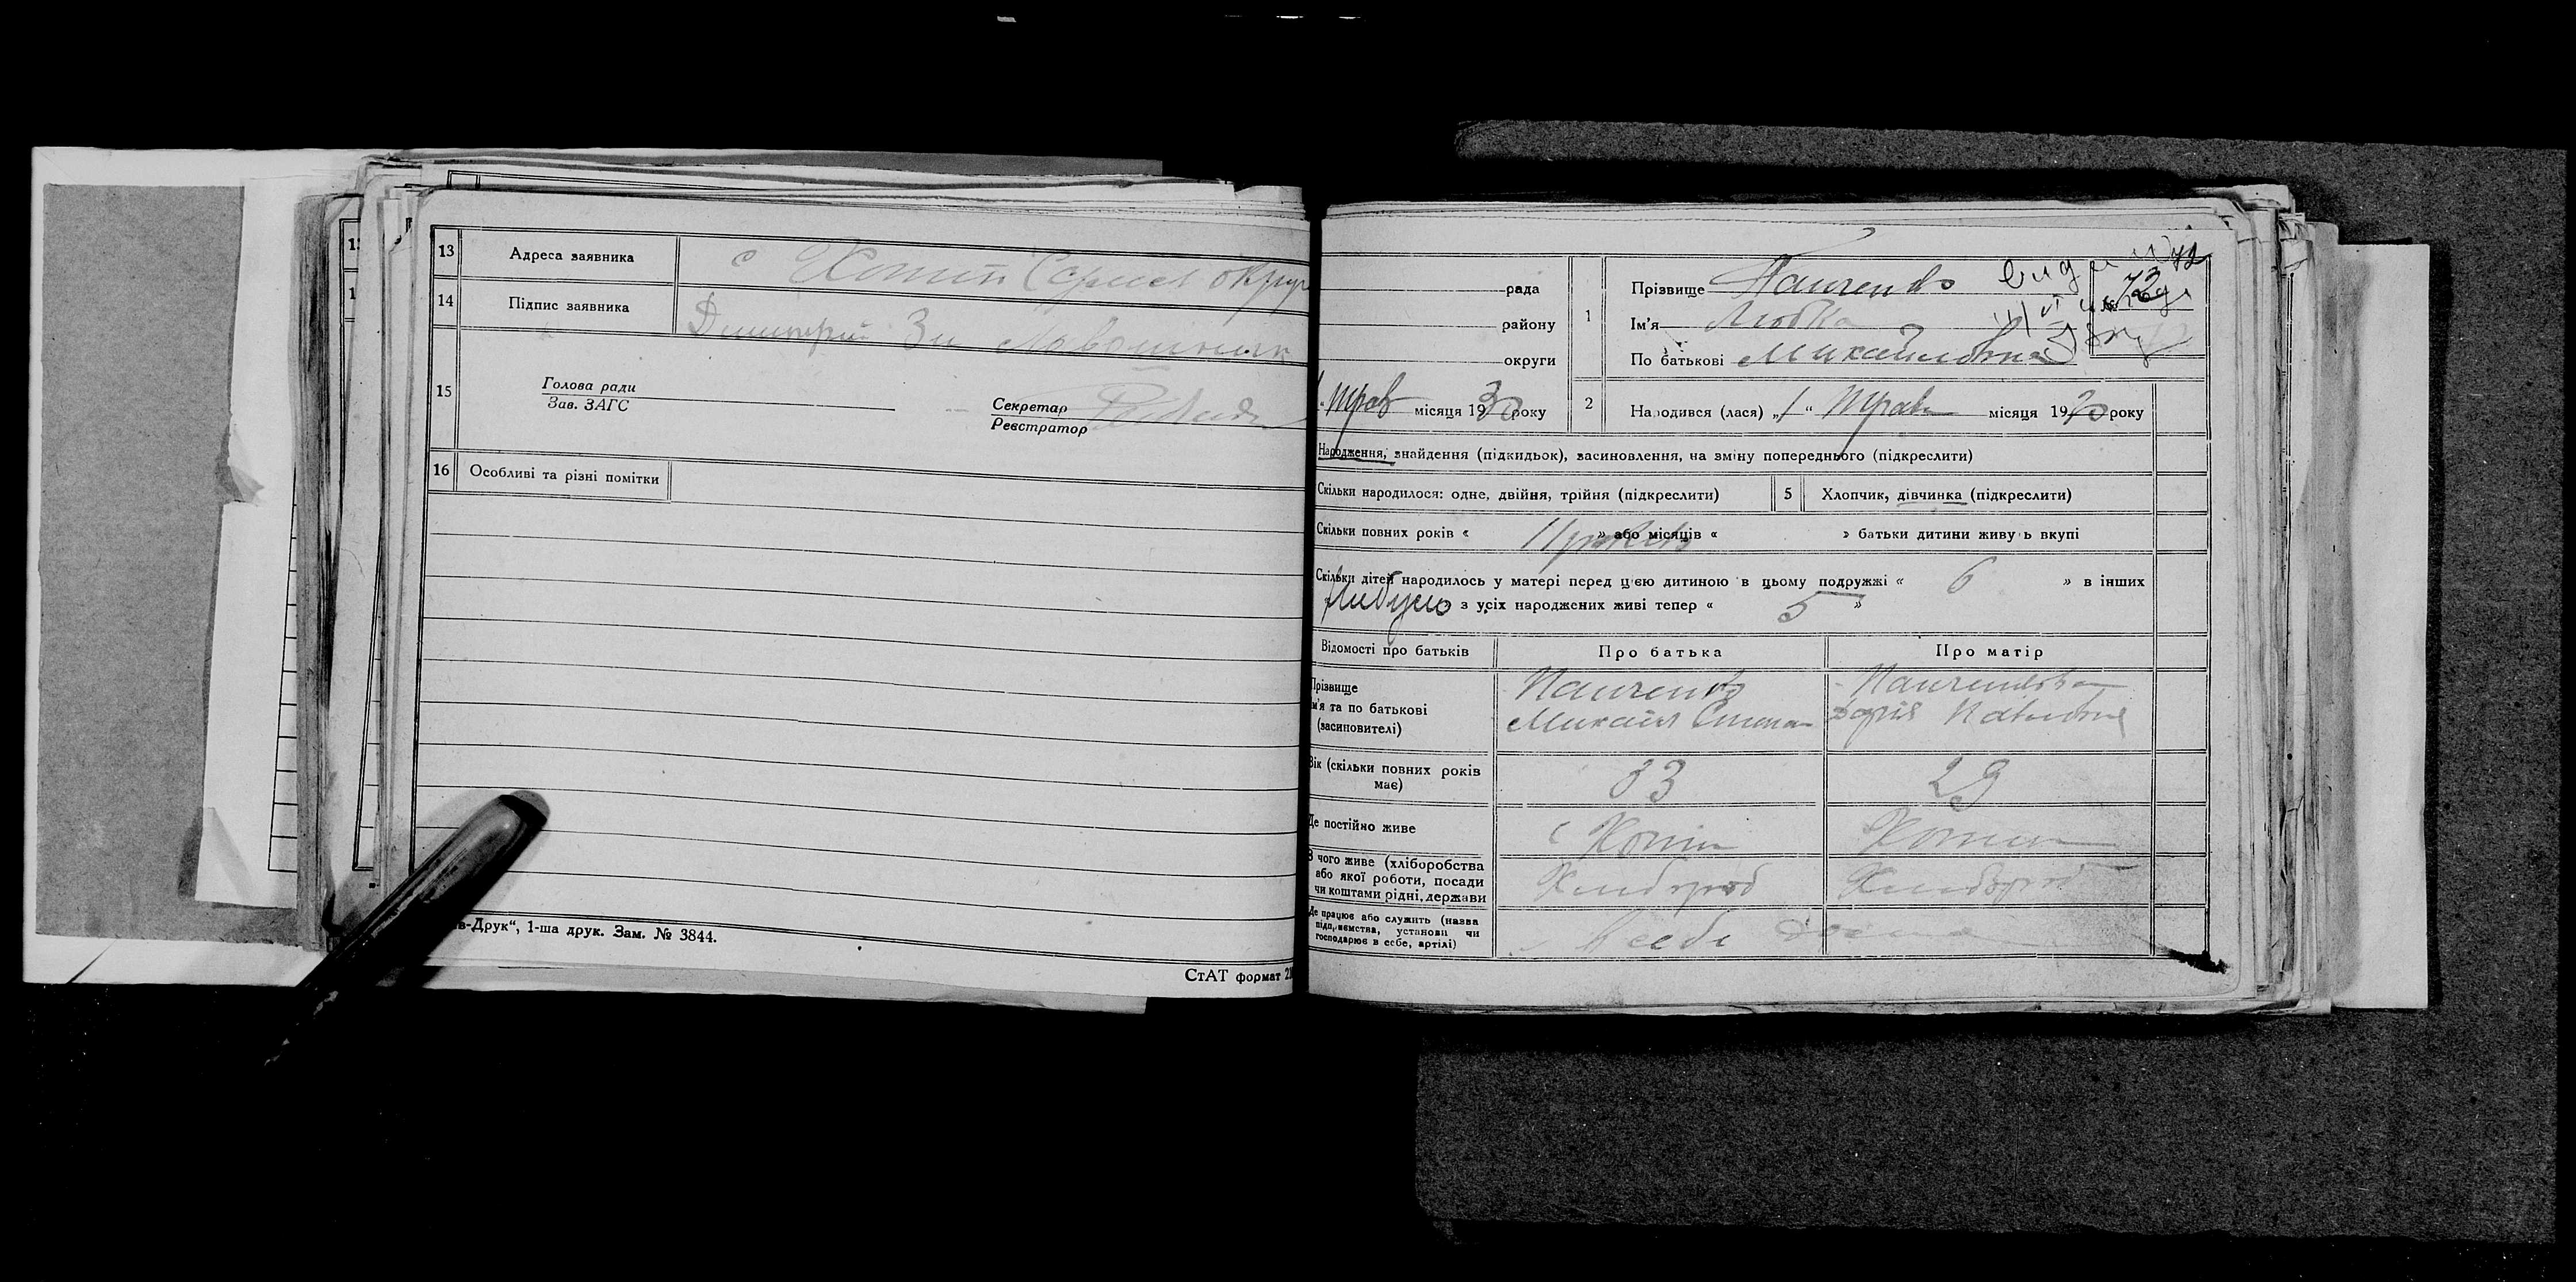 13 Адреса заявника с Хотінь Сумск округ
14 Підпис заявника Дмитрий
15 Голова ради
Зав. ЗАГС
Секретар
Реєстратор
16 Особливі та різні помітки
в-Друк“, 1-ша друк. Зам. № 3844.
СтАТ формат
рада
району
округи
„ 1 “ Трав місяця 1930 року
1 Прізвище Панченко
Ім'я Любка
По батькові Михайловна
73
72
2 Народився (лася) „1“ Трав місяця 1930 року
Народження, знайдення (підкидьок), васиновлення, на зміну попереднього (підкреслити)
Скільки народилося: одне, двійня, трійня (підкреслити)
5 Хлопчик, дівчинка (підкреслити)
Скільки повних років « 11 років » або місяців « » батьки дитини живуть вкупі
Скільки дітей народилось у матері перед цією дитиною в цьому подружжі « 6 » в інших
з усіх народжених живі тепер « 5 »
Відомості про батьків Про батька Про матір
Прізвище Панченко Панченкова
ім'я та по батькові Михаил Степан Дарія Павловна
(васиновителі)
Вік (скільки повних років має) 33 29
Де постійно живе с Хотінь Хотінь
З чого живе (хліборобства Хлібороб Хлібороб
або якої роботи, посади
чи коштами рідні, держави
Де працює або служить (назва
підприємства, установи чи
господарює в себе, артілі) в себе дома